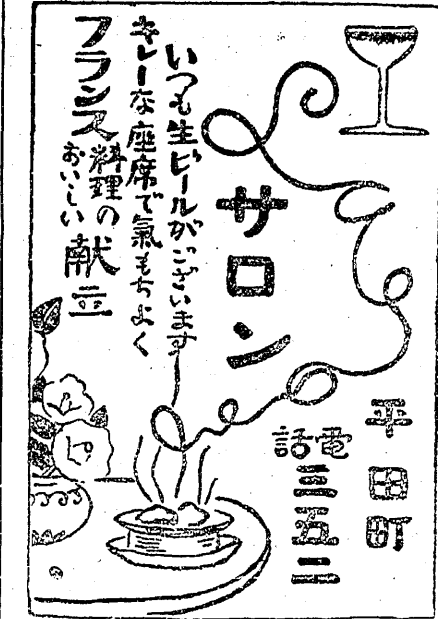 サロン
平田町
電話三五二
いつも生ビールがございます
キレーな座席で氣もちよく
おいしい
フランス料理の献立